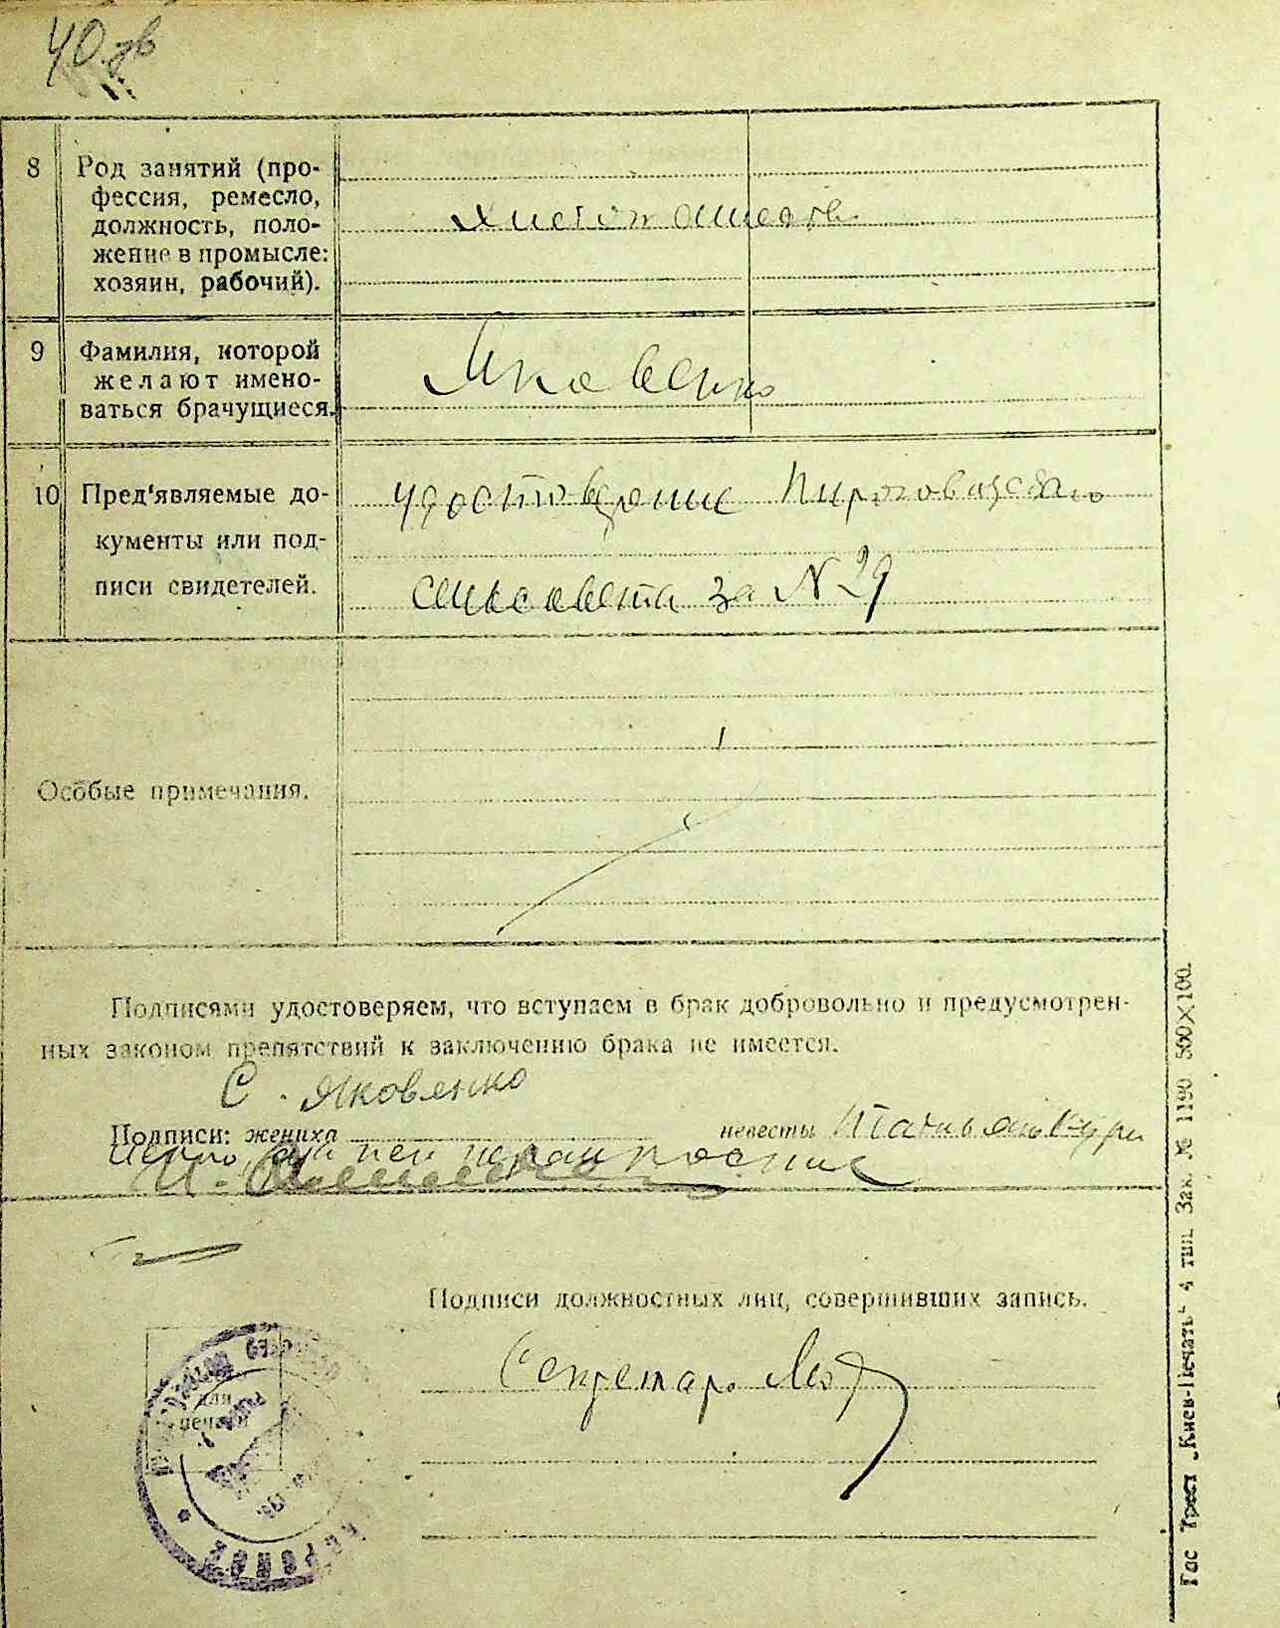 40 зв
8 Род занятий (про-
фессия, ремесло,
должность, поло-
жение в промысле:
хозяин, рабочий).
9 Фамилия, которой
желают имено-
ваться брачущиеся.
Яковенко
10 Пред'являемые до-
кументы или под-
писи свидетелей.
удостоверение
сельсовета за N 29
Особые примечания.
Подписями удостоверяем, что вступаем в брак добровольно и предусмотрен-
ных законом препятствий к заключению брака не имеется.
С. Яковенко
Подписи: жениха невесты
Подписи должностных лиц, совершивших запись.
Секретар.
для
печати
Гос Трест „Киев-Печать“ 4 тип. Зак. № 1190 500×100.